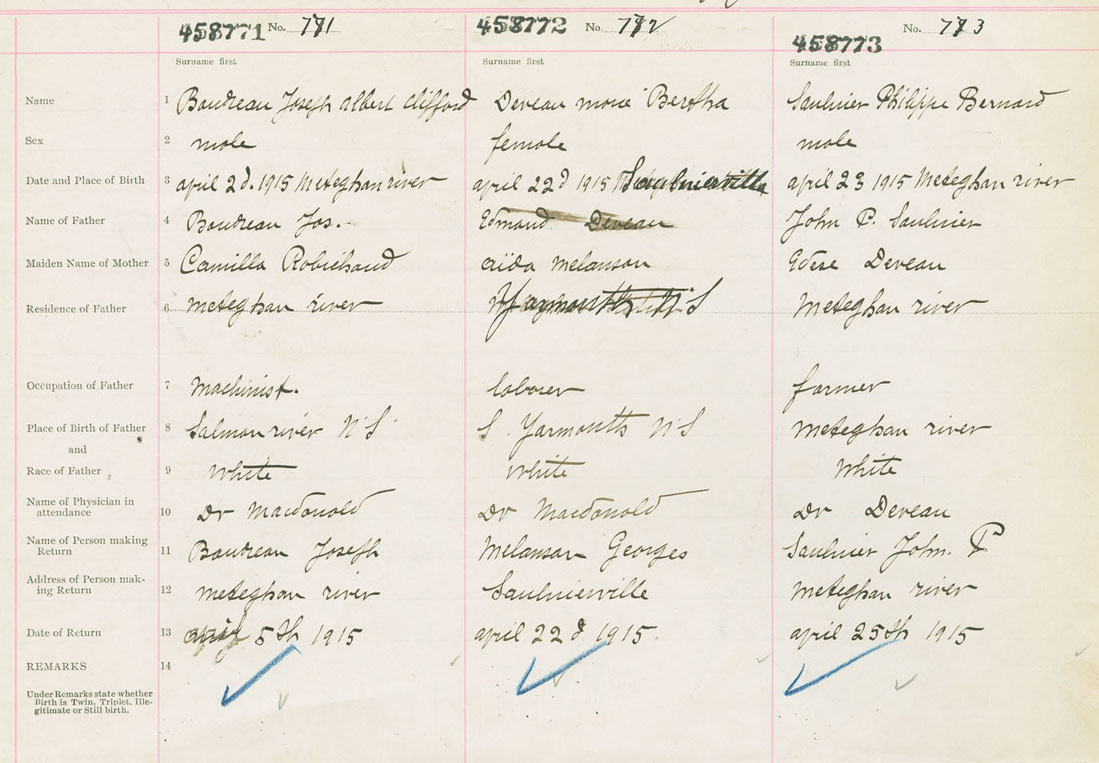 458771 No. 771 458772 No. 772 458773 No. 773
Surname first Surname first Surname first
Name 1 Boudreau Joseph albert clifford Deveau marie Bertha Saulnier Philippe Bernard
Sex 2 male female male
Date and Place of Birth 3 april 2d. 1915 Meteghan river april 22d 1915 Saulnierville april 23 1915 Meteghan river
Name of Father 4 Boudreau Jos. Edmond Deveau John P. Saulnier
Maiden Name of Mother 5 Camilla Robichaud aida melanson Edese Deveau
Residence of Father 6 meteghan river Yarmouth N S Meteghan river
Occupation of Father 7 Machinist. laborer farmer
Place of Birth of Father 8 Salmon river N S S. Yarmouth N S meteghan river
and
Race of Father 9 White White White
Name of Physician in
attendance 10 Dr Macdonald Dr Macdonald Dr Deveau
Name of Person making
Return 11 Boudreau Joseph Melanson Georges Saulnier John. P
Address of Person mak-
ing Return 12 meteghan river Saulnierville meteghan river
Date of Return 13 april 5th 1915 april 22d 1915. april 25th 1915
REMARKS 14
Under Remarks state whether
Birth is Twin, Triplet, Ille-
gitimate or Still birth.